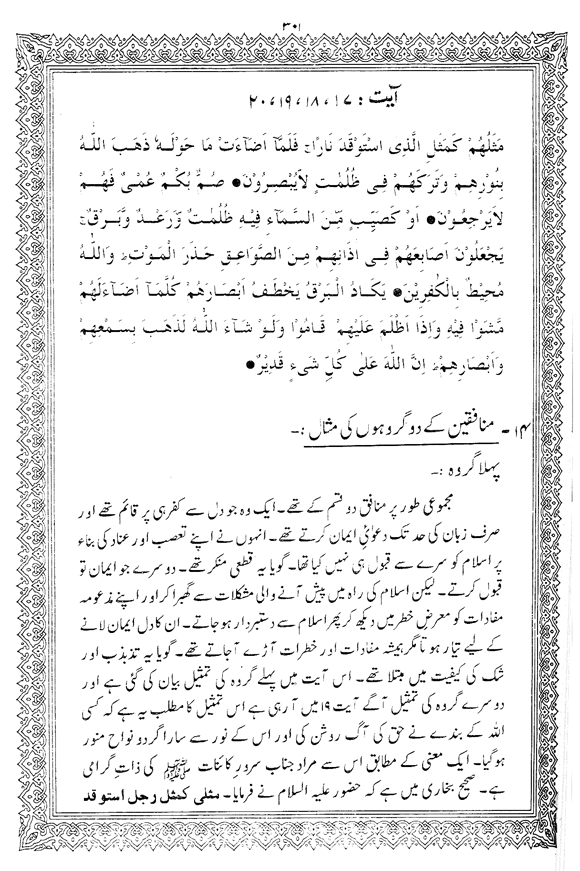 ۳۰۱
آیت : ۱۷ ، ۱۸ ، ۱۹ ، ۲۰
مَثَلُهُمْ كَمَثَلِ الَّذِى اسْتَوْقَدَ نَارًا ۚ فَلَمَّآ اَضَآءَتْ مَا حَوْلَهٗ ذَهَبَ اللّٰهُ
بِنُوْرِهِمْ وَتَرَكَهُمْ فِىْ ظُلُمٰتٍ لَّايُبْصِرُوْنَ● صُمٌّۢ بُكْمٌ عُمْىٌ فَهُمْ
لَايَرْجِعُوْنَ● اَوْ كَصَيِّبٍ مِّنَ السَّمَآءِ فِيْهِ ظُلُمٰتٌ وَّرَعْدٌ وَّبَرْقٌ ۚ
يَجْعَلُوْنَ اَصَابِعَهُمْ فِىْٓ اٰذَانِهِمْ مِنَ الصَّوَاعِقِ حَذَرَ الْمَوْتِ ؕ وَاللّٰهُ
مُحِيْطٌۢ بِالْكٰفِرِيْنَ● يَكَادُ الْبَرْقُ يَخْطَفُ اَبْصَارَهُمْ كُلَّمَآ اَضَآءَلَهُمْ
مَّشَوْا فِيْهِ وَاِذَا اَظْلَمَ عَلَيْهِمْ قَامُوْا وَلَوْ شَآءَ اللّٰهُ لَذَهَبَ بِسَمْعِهِمْ
وَاَبْصَارِهِمْ ؕ اِنَّ اللّٰهَ عَلٰى كُلِّ شَىْءٍ قَدِيْرٌ●
۱۴ ۔ منافقین کے دو گروہوں کی مثال :۔
پہلا گروہ :۔
مجموعی طور پر منافق دو قسم کے تھے۔ ایک وہ جو دل سے کفر ہی پر قائم تھے اور
صرف زبان کی حد تک دعویٰ ایمان کرتے تھے۔ انہوں نے اپنے تعصب اور عناد کی بناء
پر اسلام کو سرے سے قبول ہی نہیں کیا تھا۔ گویا یہ قطعی منکر تھے۔ دوسرے جو ایمان تو
قبول کرتے۔ لیکن اسلام کی راہ میں پیش آنے والی مشکلات سے گھبرا کر اور اپنے مذعومہ
مفادات کو معرض خطر میں دیکھ کر پھر اسلام سے دستبردار ہو جاتے۔ ان کا دل ایمان لانے
کے لیے تیار ہوتا مگر ہمیشہ مفادات اور خطرات آڑے آ جاتے تھے۔ گویا یہ تذبذب اور
شک کی کیفیت میں مبتلا تھے۔ اس آیت میں پہلے گروہ کی تمثیل بیان کی گئی ہے اور
دوسرے گروہ کی تمثیل آگے آیت ۱۹ میں آ رہی ہے اس تمثیل کا مطلب یہ ہے کہ کسی
اللہ کے بندے نے حق کی آگ روشن کی اور اس کے نور سے سارا گردو نواح منور
ہو گیا۔ ایک معنی کے مطابق اس سے مراد جناب سرور کائنات ﷺ کی ذات گرامی
ہے۔ صحیح بخاری میں ہے کہ حضور علیہ السلام نے فرمایا۔ مثلی کمثل رجل استو قد